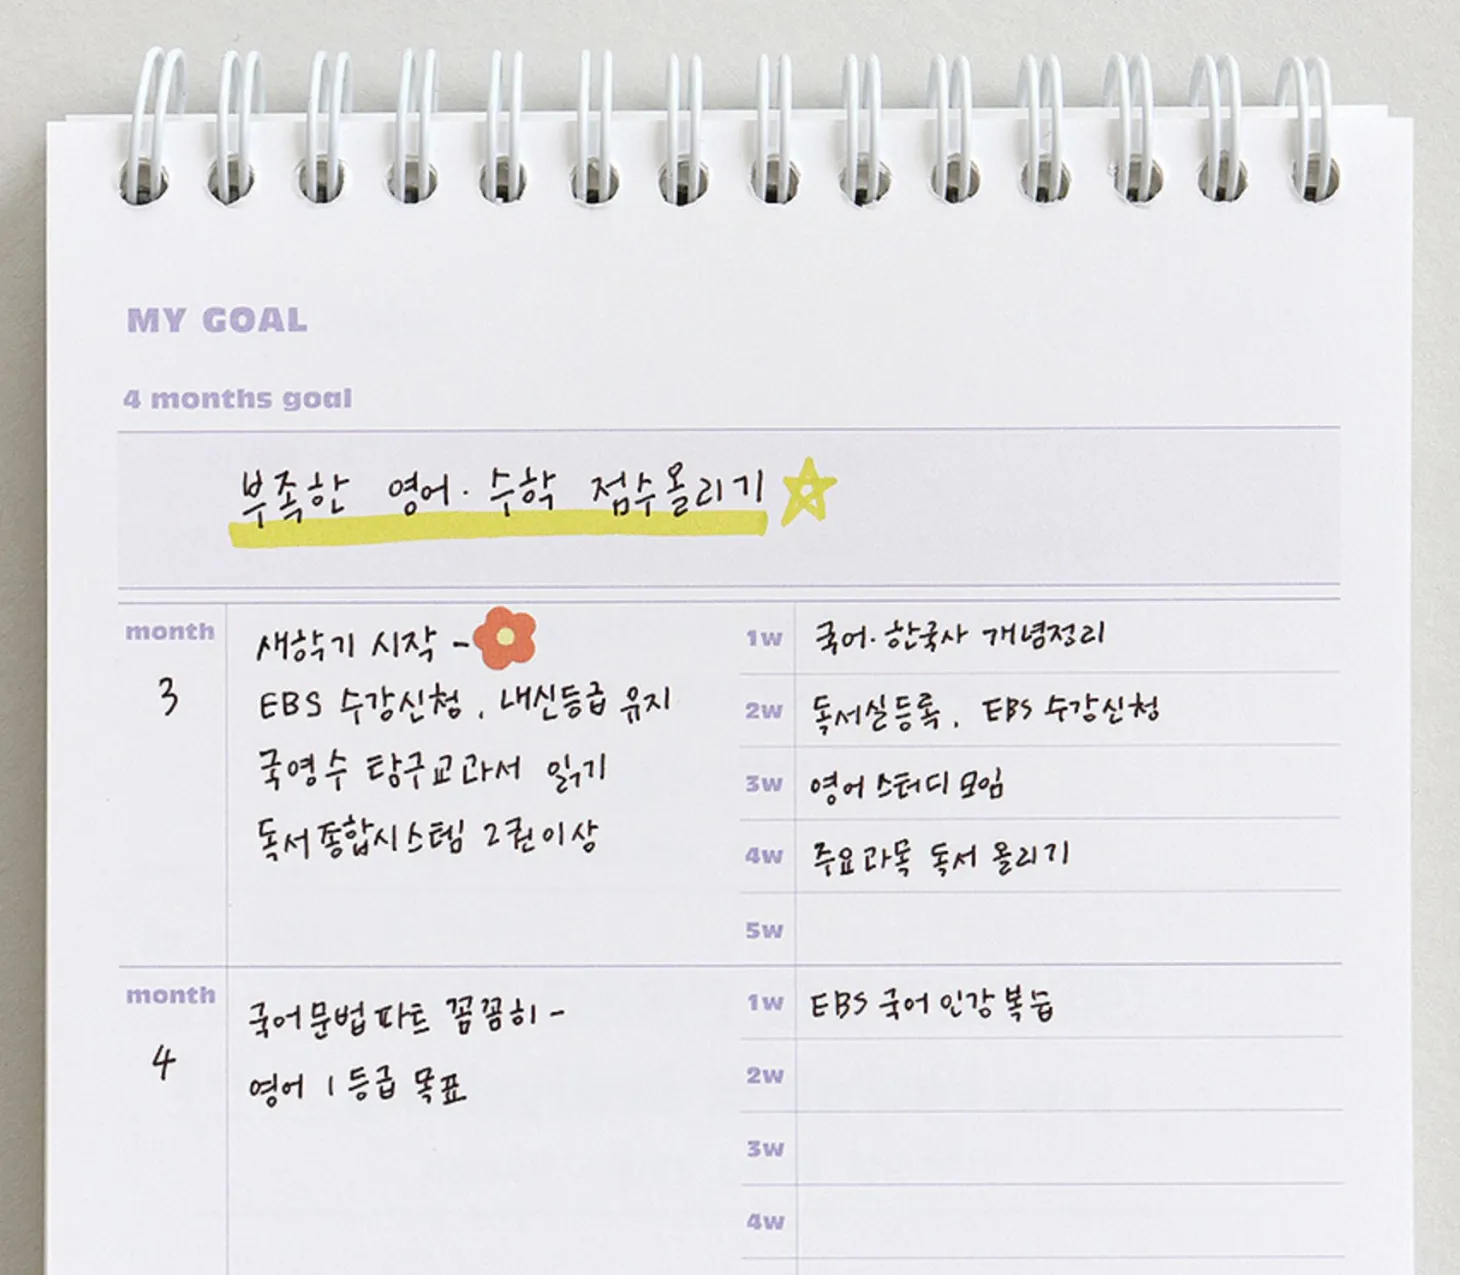 MY GOAL
4 months goal
부족한 영어·수학 점수올리기
month
3
새학기 시작 -
EBS 수강신청, 내신등급 유지
국영수 탐구교과서 읽기
독서종합시스템 2권이상
1w 국어·한국사 개념정리
2w 독서실등록, EBS 수강신청
3w 영어 스터디 모임
4w 주요과목 독서 올리기
5w
month
4
국어문법파트 꼼꼼히 -
영어 1등급 목표
1w EBS 국어 인강 복습
2w
3w
4w